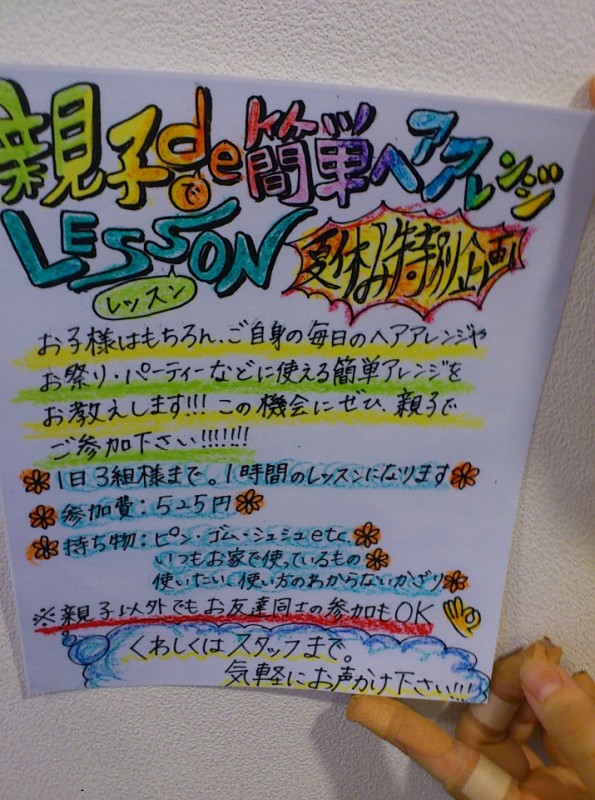 親子de簡単ヘアアレンジ
で
LESSON
レッスン
夏休み特別企画
お子様はもちろん、ご自身の毎日のヘアアレンジや
お祭り・パーティーなどに使える簡単アレンジを
お教えします!!! この機会にぜひ、親子で
ご参加下さい!!!!!!!
1日3組様まで。1時間のレッスンになります
参加費：525円
持ち物：ピン・ゴム・シュシュetc.
いつもお家で使っているもの
使いたい、使い方のわからないかざり
※親子以外でもお友達同士の参加もOK
くわしくはスタッフまで。
気軽にお声かけ下さい!!!